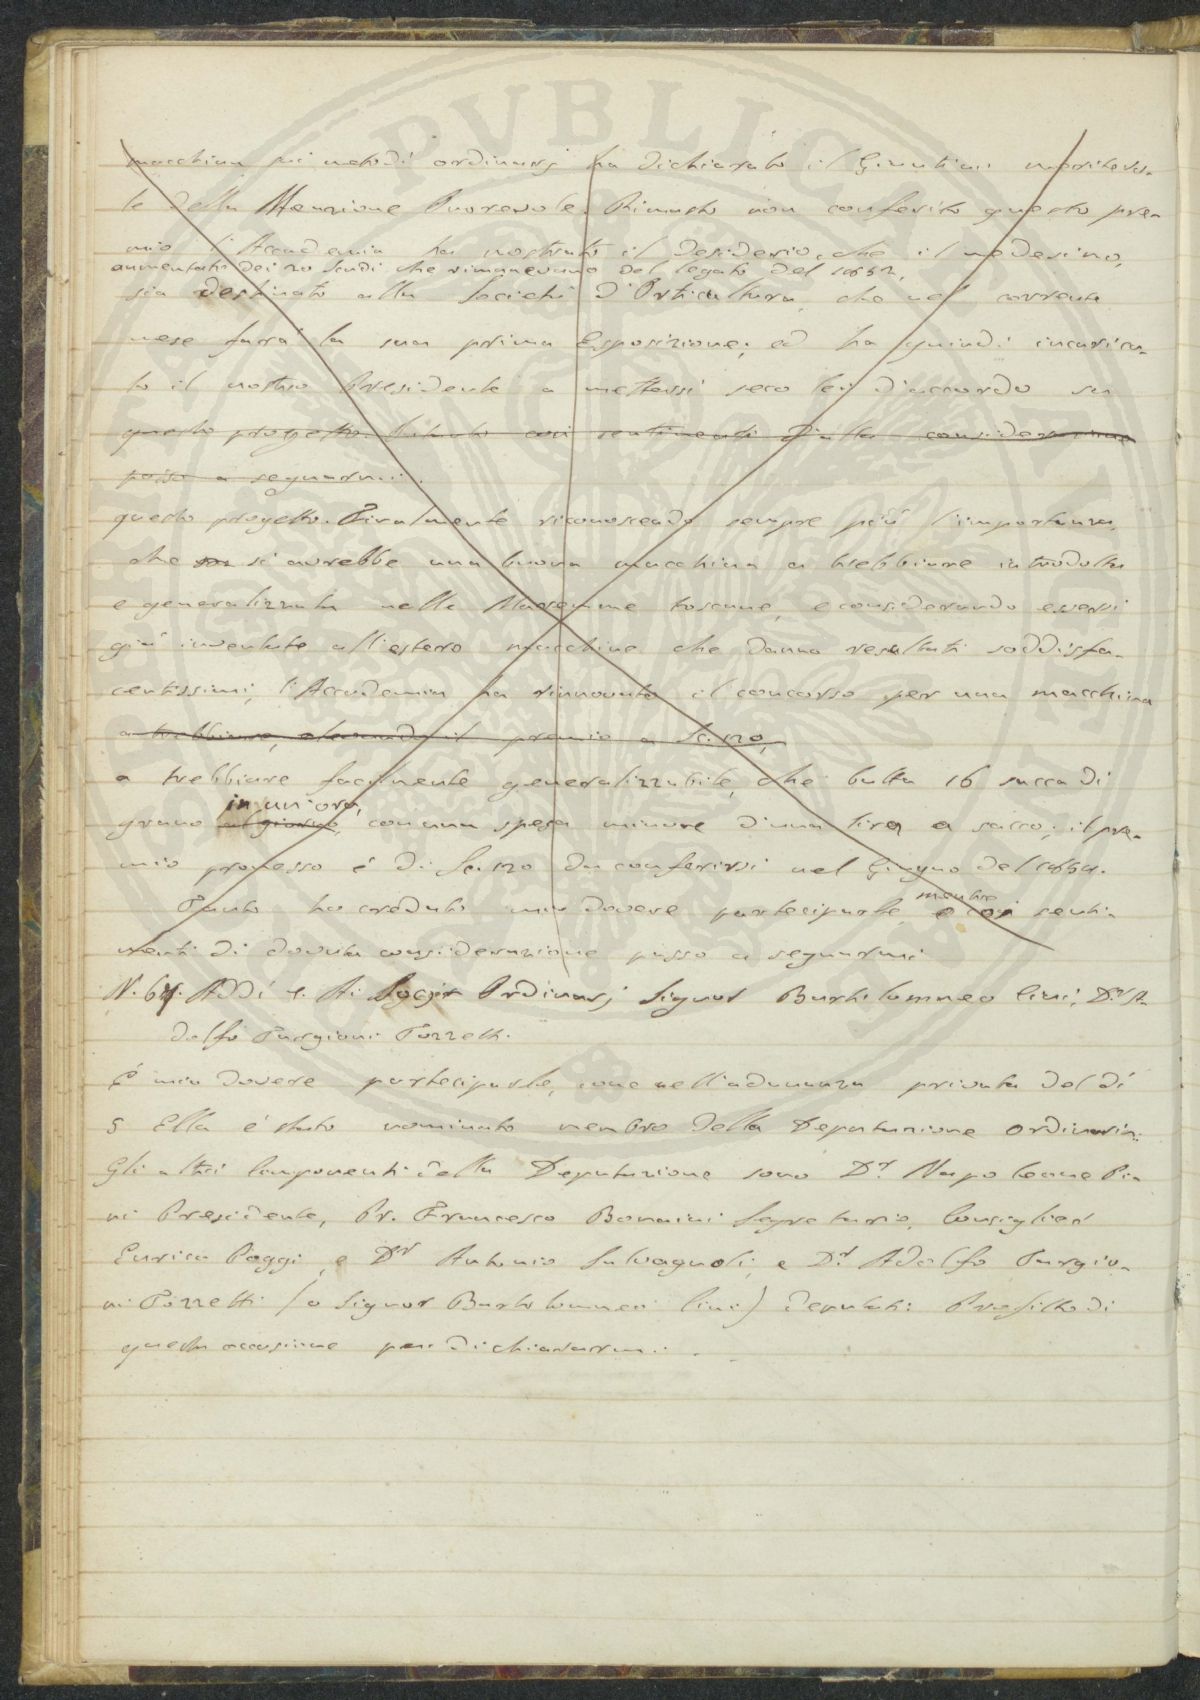 macchina sui metodi ordinarj ha dichiarato il Giuntini meritevo-
le della Menzione Onorevole. Rimasto non conferito questo pre-
mio l'Accademia ha mostrato il desiderio, che il medesimo,
aumentato dei 20 scudi che rimanevano del legato del 1852,
sia destinato alla Società d'Orticultura, che nel corrente
mese farà la sua prima Esposizione; ed ha quindi incarica-
to il nostro Presidente a mettersi seco lei d'accordo su
questo progetto. coi sentimenti d'alta considerazione
passo a segnarmi.
questo progetto. Finalmente riconoscendo sempre più l'importanza,
che si avrebbe una buona macchina a trebbiare introdotta
e generalizzata nelle Maremme toscane, e considerando essersi
già inventate all'estero macchine che danno resultati soddisfa-
centissimi, l'Accademia ha rinnovato il concorso per una macchina
a trebbiare, elevando il premio a Sc. 120,
a trebbiare facilmente generalizzabile, che batta 16 sacca di
in un'ora,
grano al giorno, con una spesa minore d'una lira a sacco; il pre-
mio promesso è di Sc. 120 da conferirsi nel Giugno del 1854.
Tanto ho creduto mio dovere partecipale, mentre coi senti-
menti di dovuta considerazione passo a segnarmi
N. 64. Addì 4. Ai Socj Ordinarj Signor Bartolommeo Cini, D.r A-
dolfo Targioni Tozzetti.
È mio dovere parteciparle, come nell'adunanza privata del dì
5 Ella è stato nominato membro della Deputazione Ordinaria.
Gli altri componenti della Deputazione sono D.r Napoleone Pi-
ni Presidente, Pr. Francesco Bonaini Segretario, Consiglier
Enrico Poggi, e D.r Antonio Salvagnoli, e D.r Adolfo Targio-
ni Tozzetti (o Signor Bartolommeo Cini) deputati. Profitto di
questa occasione per dichiararmi.
PVBLICA